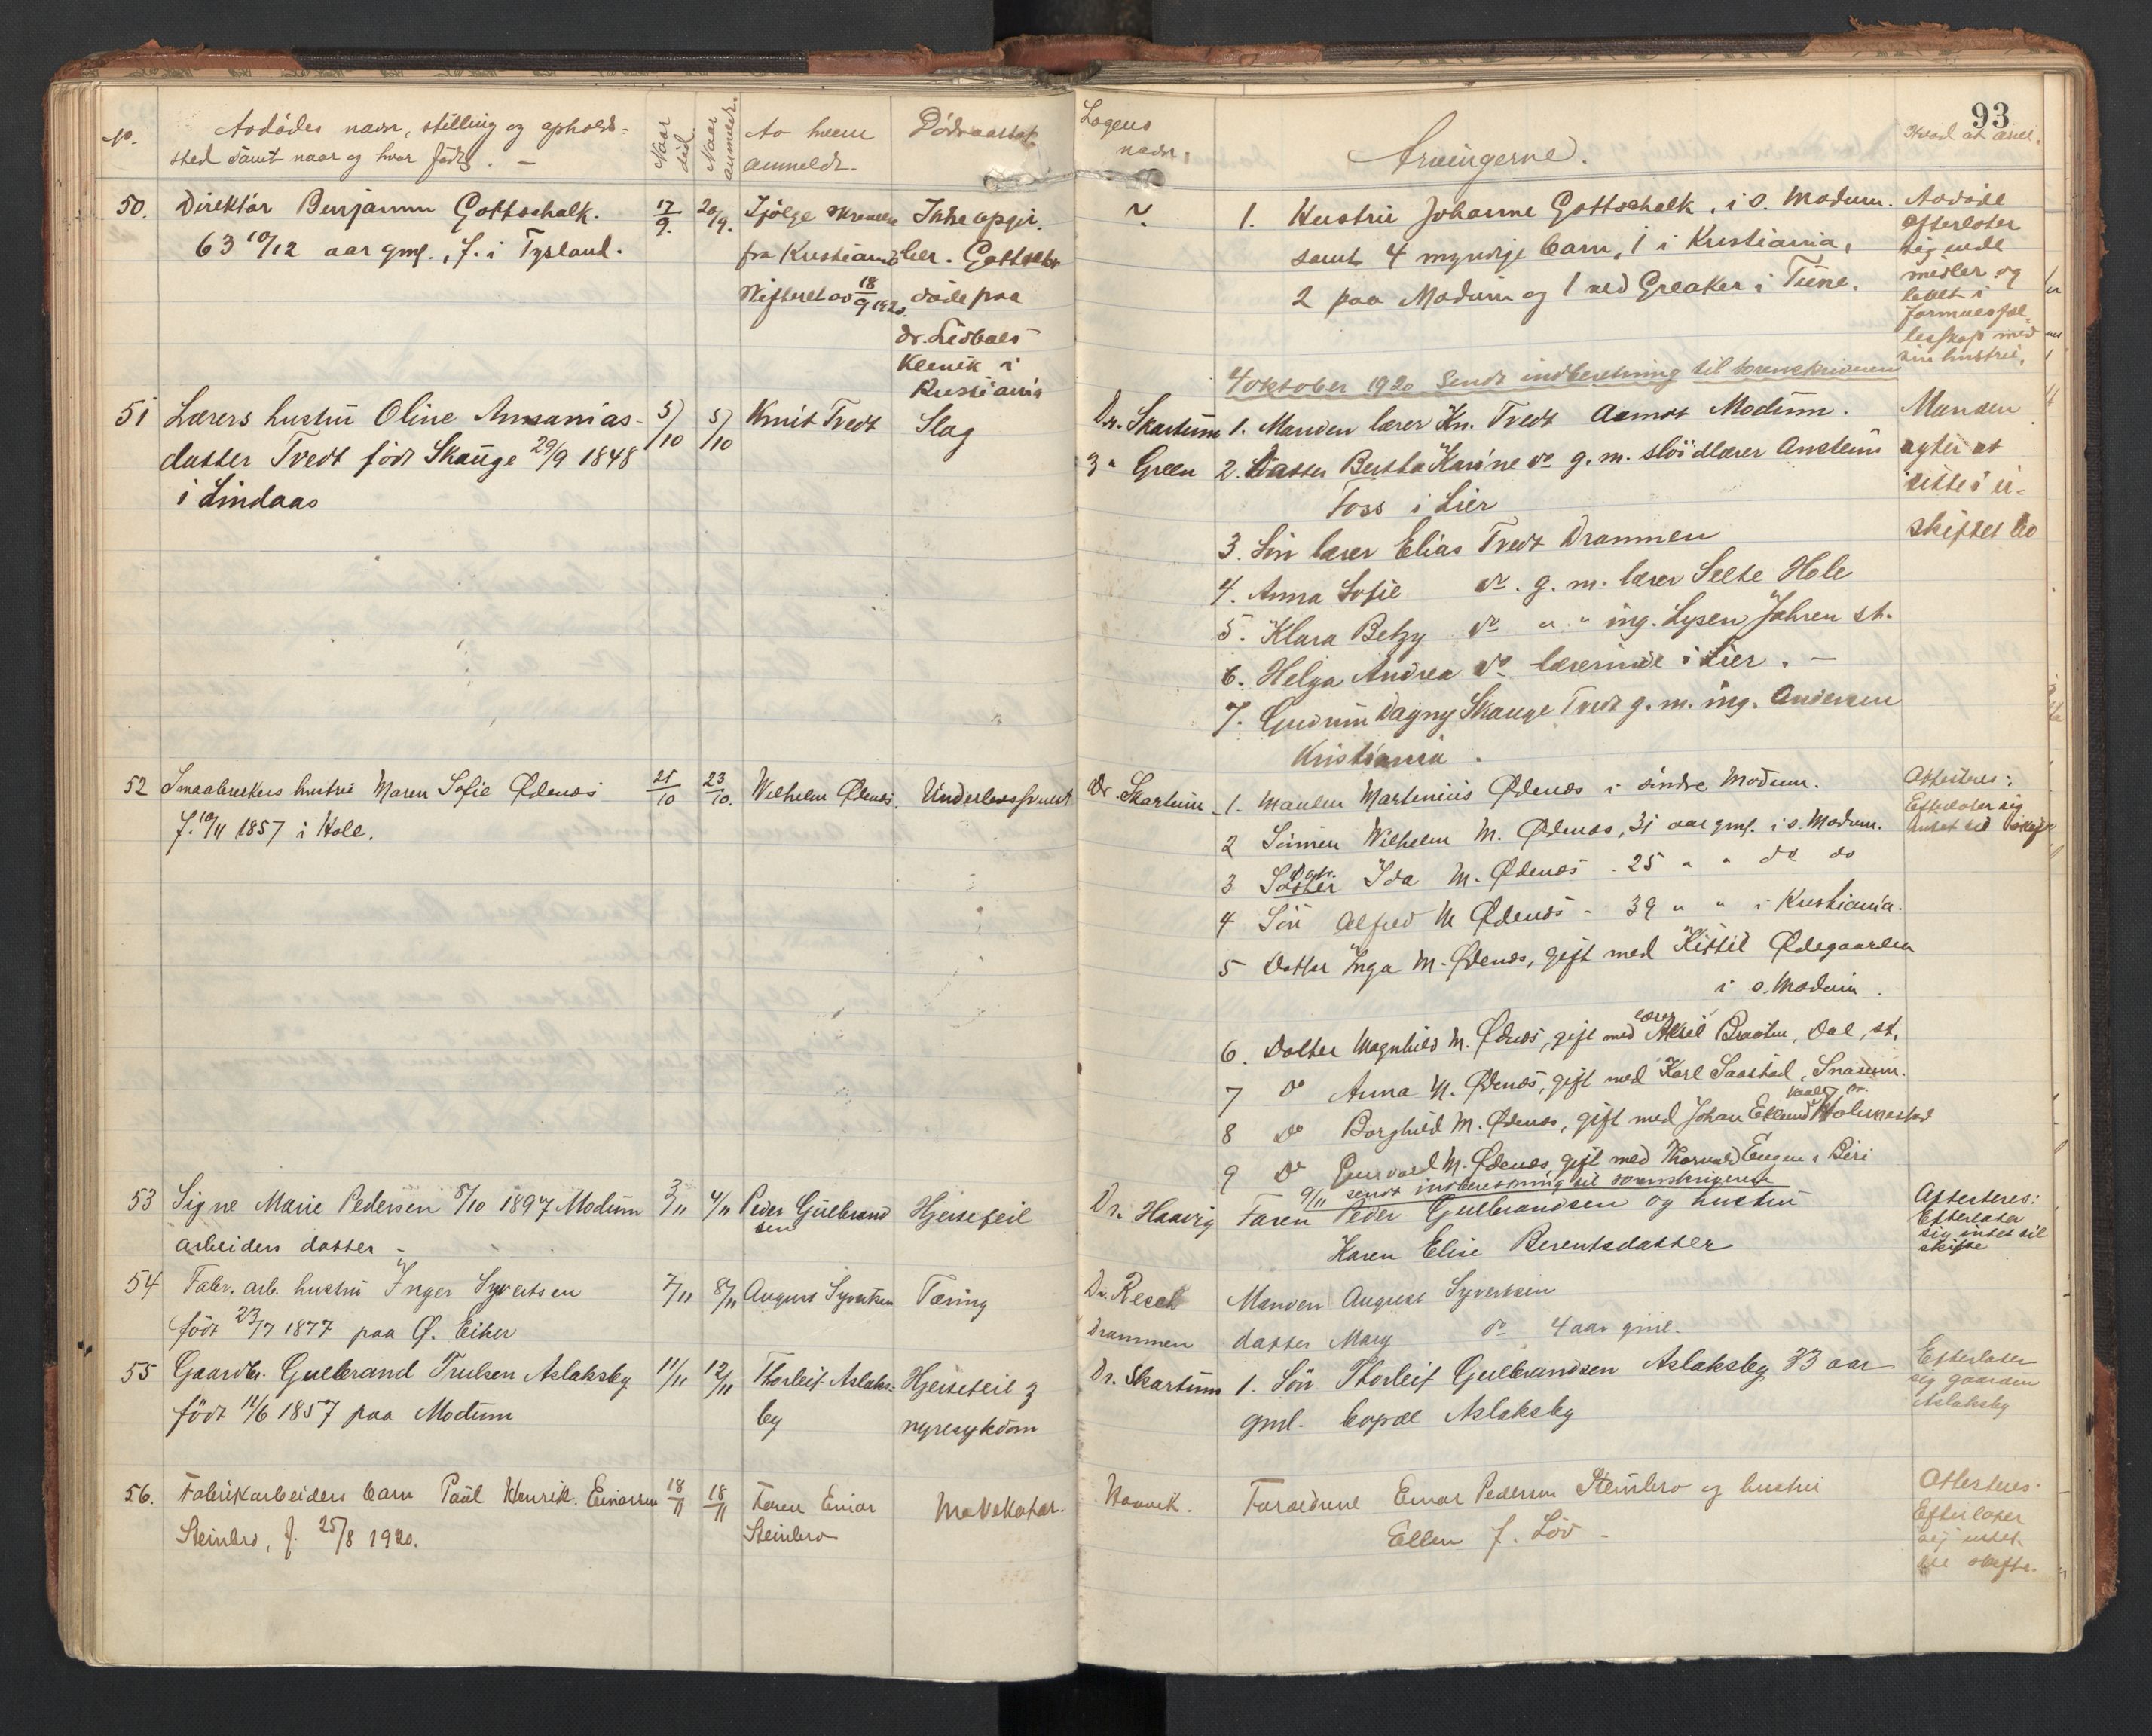 No.
Avdødes navn, stilling og opholds-
sted samt naar og hvor født. -
Naar
død.
Naar
anmeldt.
Av hvem
anmeldt.
Dødsaarsak
50. Direktør Benjamin Gottschalk.
63 10/12 aar gml., f. i Tyskland.
17/9. 20/9.
Ifølge skrivelse
fra Kristiania
skifteret av 18/9 1920.
Ikke opgit.
Gottschalk
døde paa
dr.
Klinik i
Kristiania
51 Lærers hustru Oline Ananias-
datter Tvedt født Skauge 29/9 1848
i Lindaas
5/10 5/10 Knut Tvedt Slag
52 Smaabrukers hustru Maren Sofie Ødenæs
f. 10/4 1857 i Hole.
21/10 23/10. Wilhelm Ødenæs. Underlivssvulst
53 Signe Marie Pedersen 5/10 1897 Modum
arbeiders datter -
3/11 4/11 Peder Gulbrand
sen
Hjertefeil
54 Fabr. arb. hustru Inger Syvertsen
født 23/7 1877 paa Ø. Eiker
7/11 8/11 August Syvertsen Tæring
55 Gaardbr. Gulbrand Trulsen Aslaksby
født 11/6 1857 paa Modum
11/11 12/11 Thorleif Aslaks-
by
Hjertefeil &
nyresykdom
56. Fabrikarbeiders barn Paul Henrik Einarsen
Steinbro, f. 25/8 1920.
18/11 18/11 Faren Einar
Steinbro
Mavekatar.
93
Lægens
navn.
Arvingerne.
Hvad at anm.
? 1. Hustru Johanne Gottschalk, i s. Modum.
samt 4 myndige barn, 1 i Kristiania,
2 paa Modum og 1 ved Greaker i Tune.
Avdøde
efterlater
sig
midler og
levet i
formuesfæl-
lesskap med
sin hustru.
4 oktober 1920 Sendt indberetning til sorenskriveren
Dr. Skartum 1. Manden lærer Kn. Tvedt Aamot Modum.
3 " Green 2. Datter Bertha Karine do g. m. sløidlærer Anstein
Foss i Lier
3. Søn lærer Elias Tvedt Drammen
4. Anna Sofie do. g. m. lærer Selte Hole
5. Klara Betzy do " " ing. Lysen Jahren st.
6. Helga Andrea do lærerinde i Lier. -
7. Gudrun Dagny Skauge Tvedt g. m. ing. Andersen
Kristiania.
Manden
agter at
sitte i u-
skiftet bo
Dr. Skartum 1. Manden Martinius Ødenæs i søndre Modum.
2 Sønnen Wilhelm M. Ødenæs, 31 aar gml. i s. Modum.
3 Datter Ida M. Ødenæs 25 " " do do
4 Søn Alfred M Ødenæs - 39 " " i Kristiania.
5 Datter Inga M. Ødenæs, gift med Kittil Ødegaarden
i s. Modum.
6. Datter Magnhild M. Ødenæs, gift med lærer Aksel Braaten, Dal, st.
7 do Anna M. Ødenæs, gift med Karl Saastad, Snarum.
8 do Borghild M. Ødenæs, gift med Johan Eklund Holmestad
9 do M. Ødenæs, gift med Thorvald Engen i Biri
9/11 sendt indberetning til sorenskriveren
Attesteres:
Efterlater sig
intet til skifte
Dr. Haavig Faren Peder Gulbrandsen og hustru
Karen Elise Berentsdatter
Attesteres:
Efterlater
sig intet til
skifte
Dr. Resch
Drammen
Manden August Syvertsen
datter Mary do 4 aar gml.
Dr. Skartum 1. Søn Thorleif Gulbrandsen Aslaksby 33 aar
gml. bopæl Aslaksby
Efterlater
sig gaarden
Aslaksby
Haavik. Forældrene Einar Pedersen Steinbro og hustru
Ellen f. Løv -
Attesteres.
Efterlater
sig intet
til skifte.